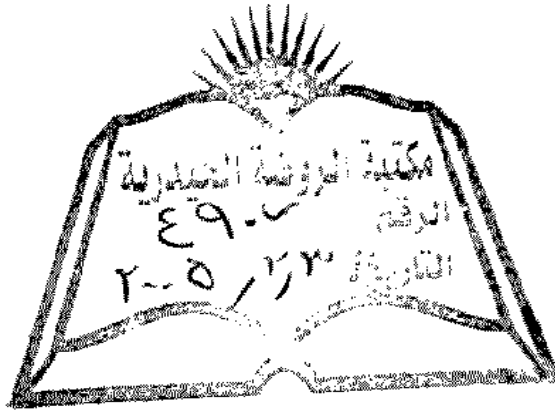 مكتبة الروضة الحيدرية
الرقم ٤٩٠٧
التاريخ ٢٠٠٥